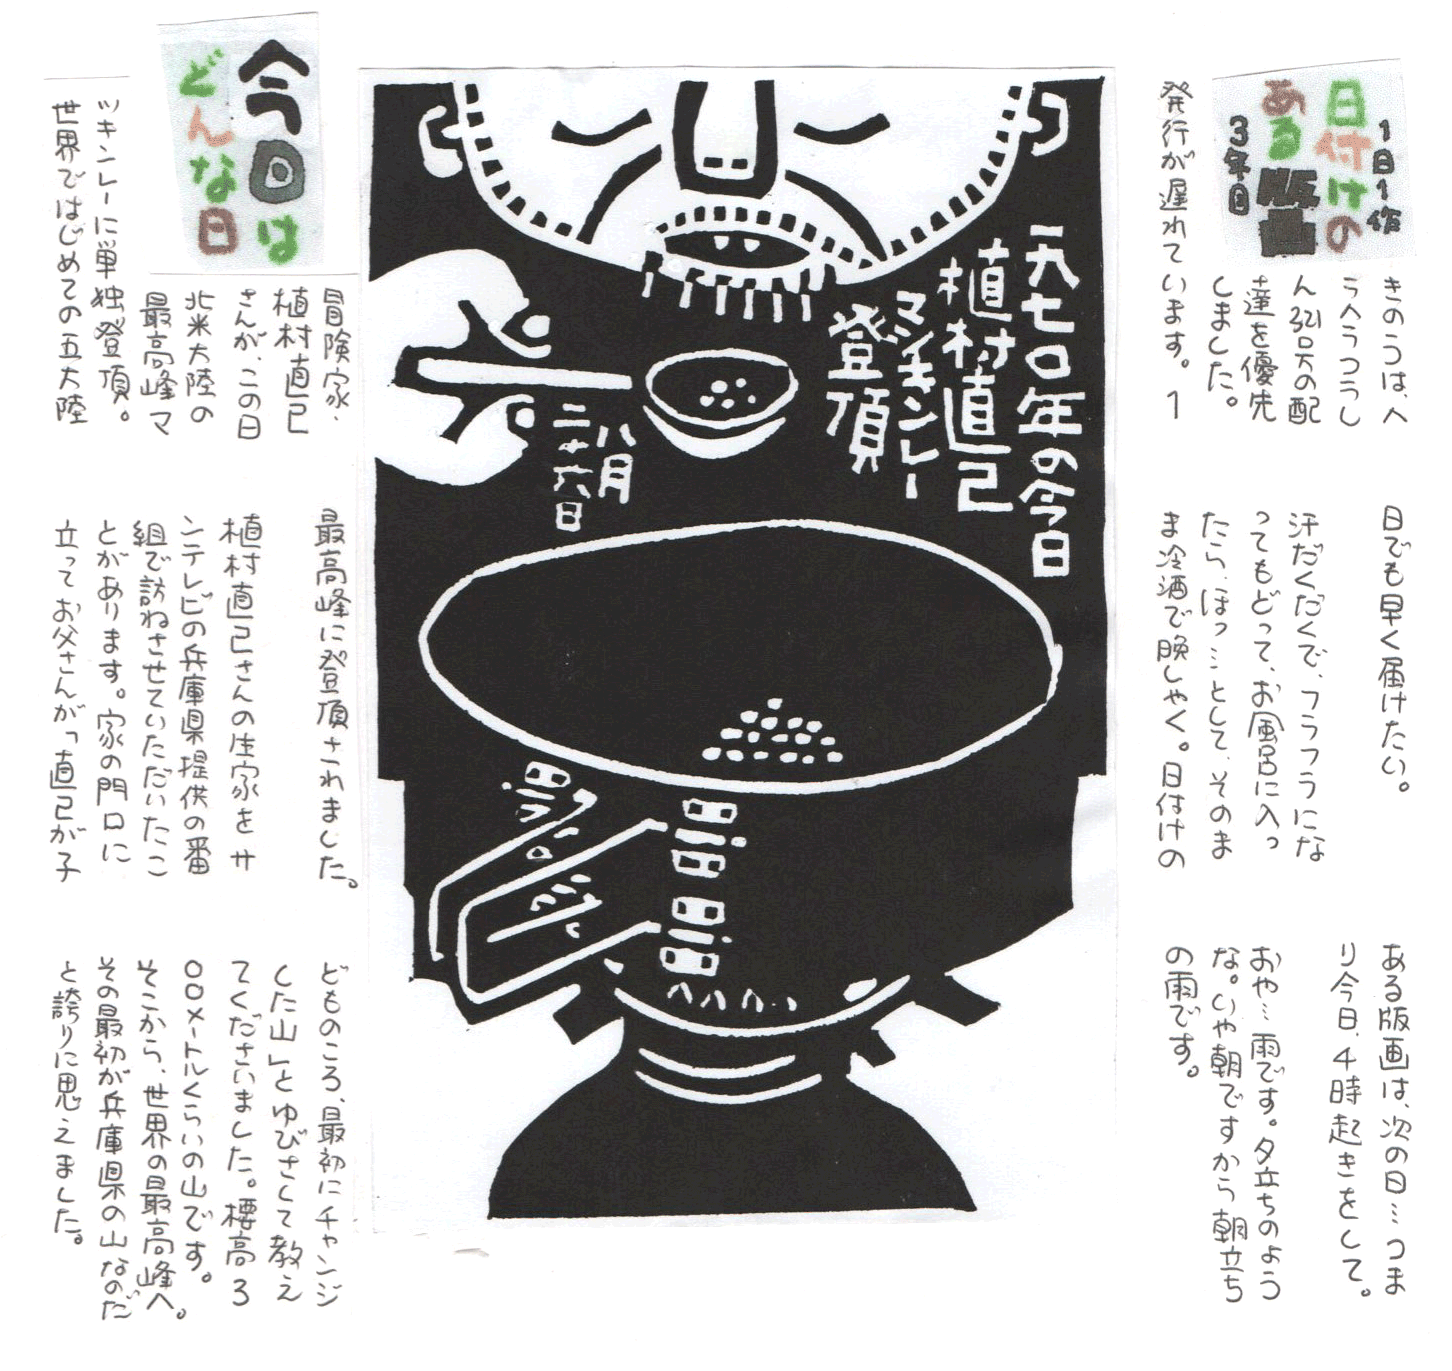 1日1作
日付けの
ある版画
3年目
きのうは、へ
ろへろつうし
ん321号の配
達を優先
しました。
発行が遅れています。1
日でも早く届けたい。
汗だくだくで、フラフラにな
ってもどって、お風呂に入っ
たら、ほっ…として、そのま
ま冷酒で晩しゃく。日付けの
ある版画は、次の日…つま
り今日、4時起きをして。
おや…雨です。夕立ちのよう
な。いや朝ですから朝立ち
の雨です。
一九七〇年の今日
植村直己
マッキンレー
登頂
八月
二十六日
今回は
どんな日
冒険家・
植村直己
さんが、この日
北米大陸の
最高峰マ
ッキンレーに単独登頂。
世界ではじめての五大陸
最高峰に登頂されました。
植村直己さんの生家をサ
ンテレビの兵庫県提供の番
組で訪ねさせていただいたこ
とがあります。家の門口に
立ってお父さんが「直己が子
どものころ、最初にチャンジ
した山」とゆびさして教え
てくださいました。標高3
〇〇メートルくらいの山です。
そこから、世界の最高峰へ。
その最初が兵庫県の山なのだ
と誇りに思えました。